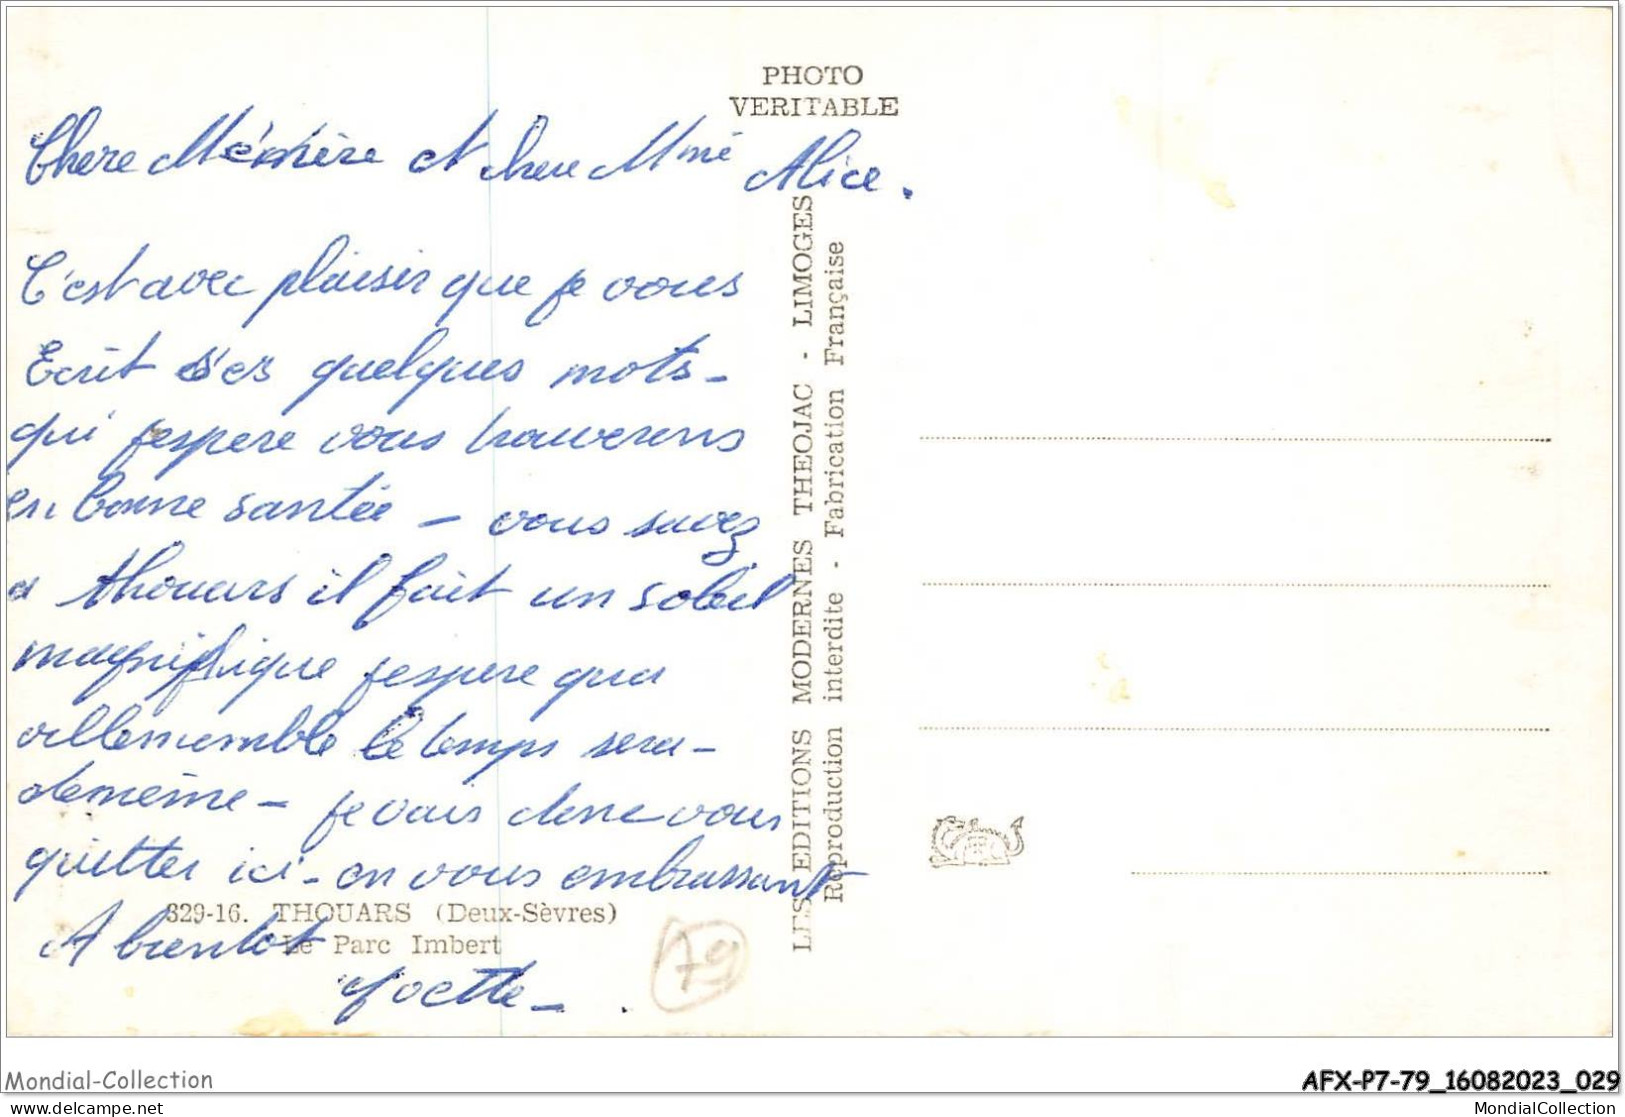 PHOTO
VERITABLE
Chere Mémère et chere Mme Alice.
C'est avec plaisir que je vous
Ecrit ses quelques mots -
qui j'espere vous trouverons
en bonne santée - vous savez
a thouars il fait un soleil
magnifique j'espere qua
villemomble le temps sera -
demême - je vais donc vous
quitter ici - en vous embrassant
329-16. THOUARS (Deux-Sèvres)
Le Parc Imbert
A bientot
Yvette -
79
LES EDITIONS MODERNES THEOJAC - LIMOGES
Reproduction interdite - Fabrication Française
Mondial-Collection
AFX-P7-79_16082023_029
delcampe.net
MondialCollection